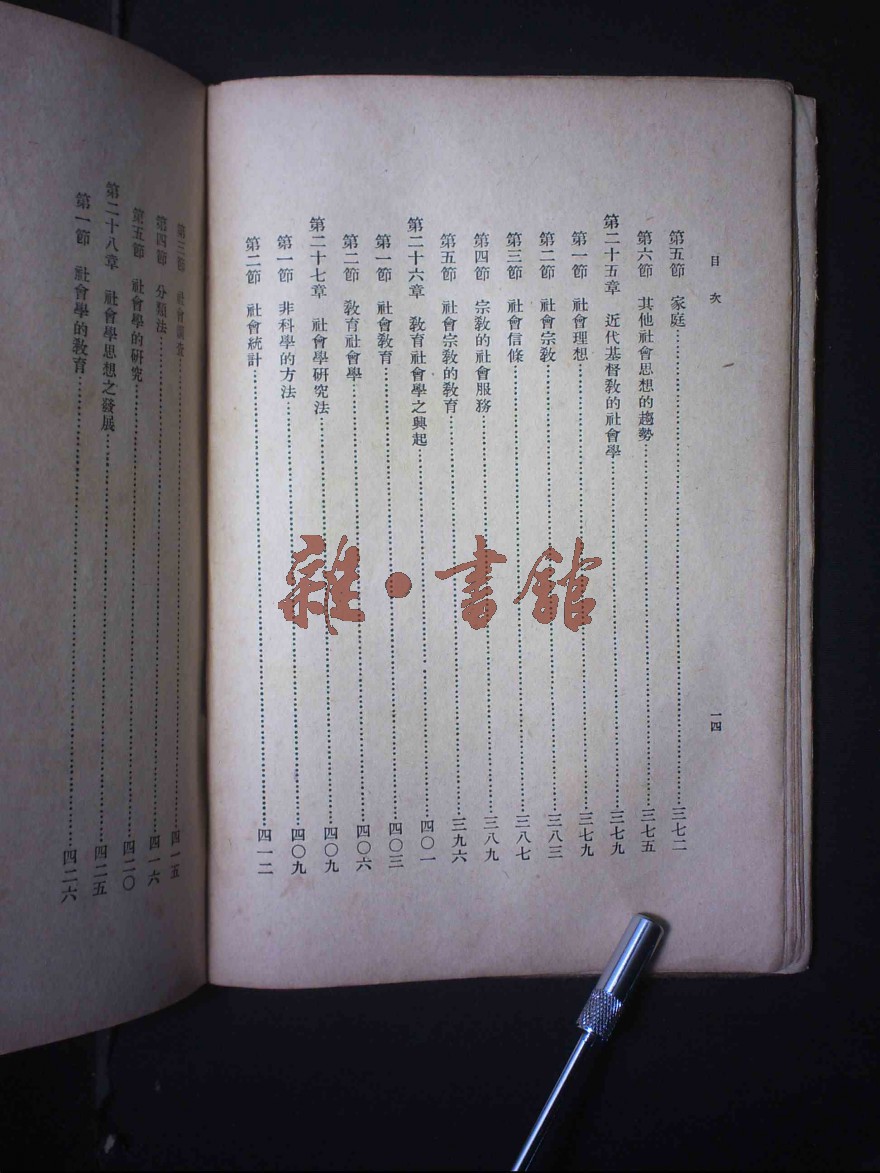 目次
一四
第五節 家庭……三七二
第六節 其他社會思想的趨勢……三七五
第二十五章 近代基督教的社會學……三七九
第一節 社會理想……三七九
第二節 社會宗教……三八三
第三節 社會信條……三八七
第四節 宗教的社會服務……三八九
第五節 社會宗教的教育……三九六
第二十六章 教育社會學之興起……四〇一
第一節 社會教育……四〇三
第二節 教育社會學……四〇六
第二十七章 社會學研究法……四〇九
第一節 非科學的方法……四〇九
第二節 社會統計……四一二
第三節 社會調查……四一五
第四節 分類法……四一六
第五節 社會學的研究……四二〇
第二十八章 社會學思想之發展……四二五
第一節 社會學的教育……四二六
雜·書館